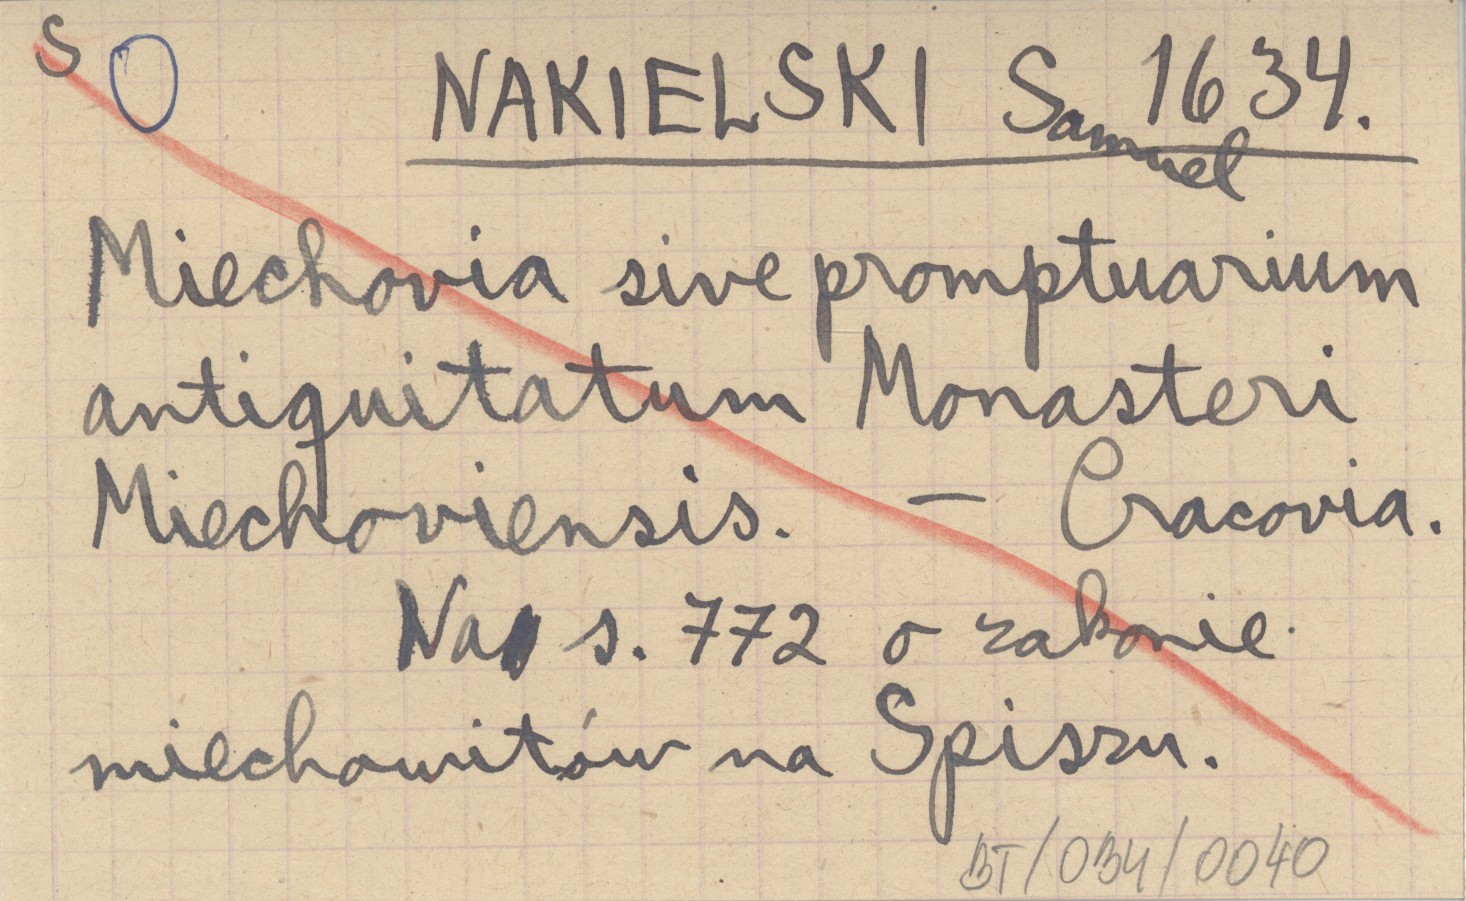 S O NAKIELSKI Samuel 1634.
Miechovia sive promptuarium
antiquitatum Monasteri
Miechoviensis. — Cracovia.
Na s. 772 o zakonie
miechowitów na Spiszu.
BT/034/0040